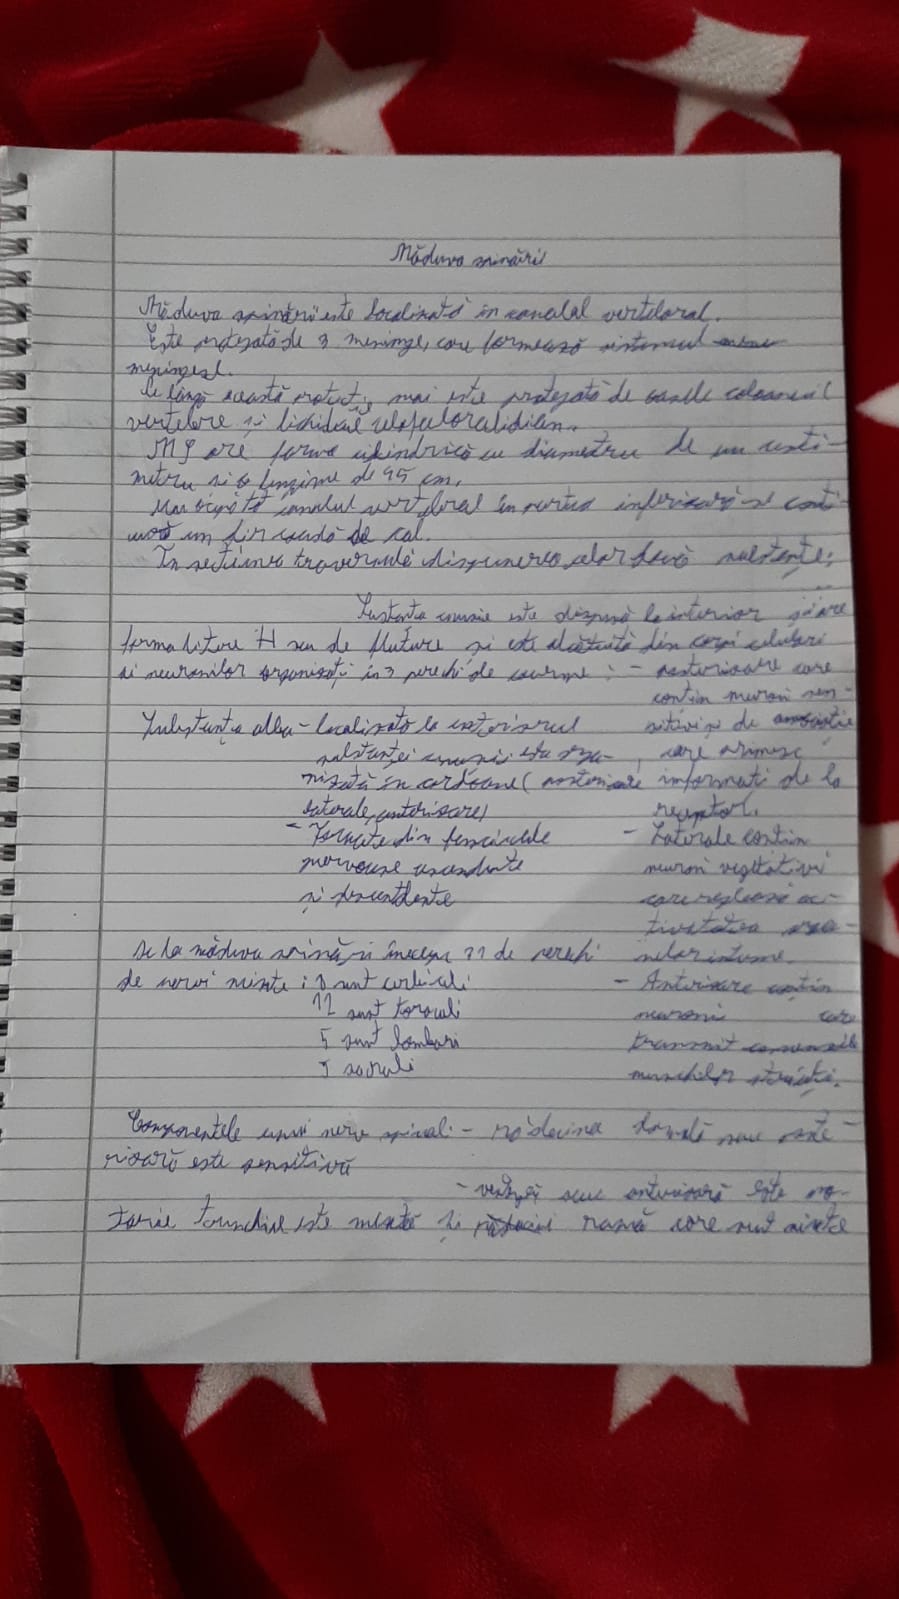 Măduva spinării
Măduva spinării este localizată în canalul vertebral.
Este protejată de 3 meninge, care formează sistemul
meningeal.
Pe lângă această protecție mai este protejată de oasele coloanei
vertebrale și lichidul
MS are forma cilindrică cu diametru de un centi-
metru și o lungime de 45 cm.
Nu ocupă tot canalul vertebral în partea inferioară se conti-
nuă un fir coadă de cal.
În secțiunea transversală dispunerea celor două substanțe:
Sustanta cenusie este dispusă la interior și are
forma litere H sau de fluture și este alcătuită din corpi celulari
ai neuronilor organizați în 3 perechi de coarne : - posterioare care
contin neuroni sen-
Substanța alba - localizată la exteriorul
sitivi și de asociatie
substanței cenusii este orga-
, care primesc
nizată în cordoane ( posterioare
informati de la
laterale, anterioare)
receptori.
- Formate din fasciculele
- Laterale contin
nervoase ascendente
neuroni vegetativi
și descendente
care reglează ac-
tivitatea
De la măduva spinării încep 31 de perechi
nelor interne.
de nervi micsti : 8 sunt cervicali
- Anterioare contin
12 sunt toracali
neuroni care
5 sunt lombari
transmit
5 sacrali
muschilor striați.
Componentele unui nerv spinal - rădăcina dorsală sau poste-
rioară este senzitivă
- este mo-
torie Trunchiul este mixtă și ramă care sunt mixte